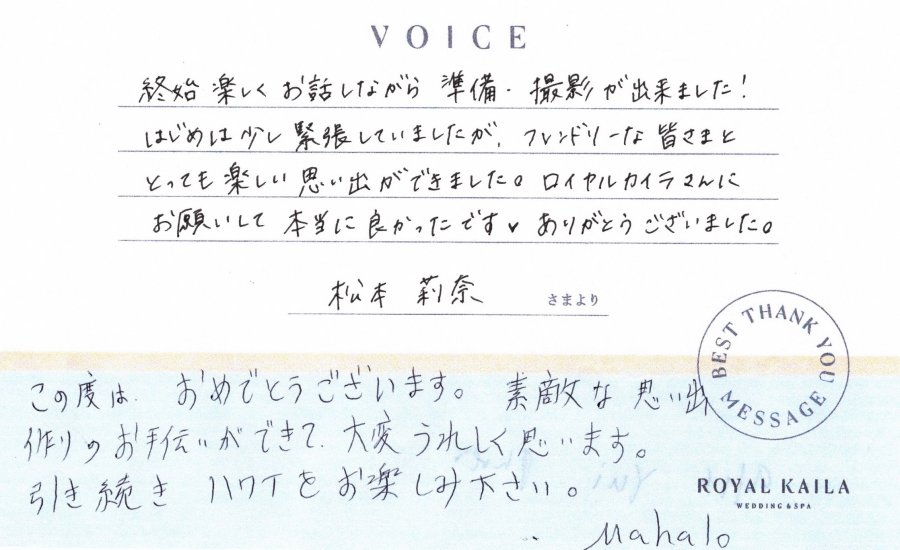 VOICE
終始 楽しく お話しながら 準備・撮影が出来ました！
はじめは少し 緊張していましたが、フレンドリーな 皆さまと
とっても 楽しい 思い出ができました。ロイヤルカイラさんに
お願いして 本当に 良かったです♥ ありがとう ございました。
松本 莉奈 さまより
BEST THANK YOU MESSAGE
この度は、おめでとうございます。素敵な 思い出
作りの お手伝いができて、大変 うれしく思います。
引き続き ハワイを お楽しみ下さい。
ROYAL KAILA
WEDDING & SPA
Mahalo